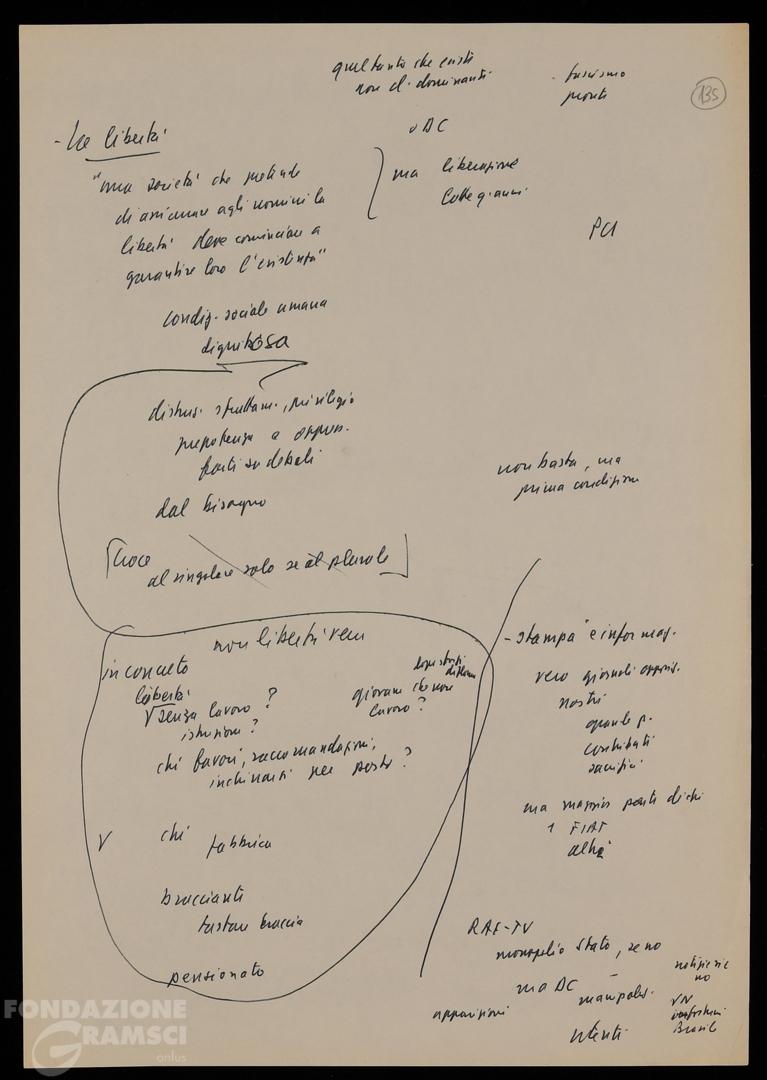 quel tanto che esiste
non d. dominanti
- fascismo
monti
135
v DC
- La libertà
"una società che pretende
di assicurare agli uomini la
libertà deve cominciare a
garantire loro l'esistenza"
ma liberazione
Colle
PCI
condiz. sociale umana
dignitosa
distruz. sfruttam., privilegio
prepotenza e oppress.
forti su deboli
dal bisogno
non basta, ma
prima condizione
Croce
al singolare solo se al plurale
non libertà vera
in concreto
libertà
V senza lavoro?
istruzione?
giovani che non
lavoro?
diploma
chi favori, raccomandazioni,
inchinarsi per posto?
V chi fabbrica
braccianti
tastare braccia
pensionato
- stampa e informaz.
vero giornali oppos.
nostri
quante p.
contributi
sacrifici
ma maggior parte di chi
1 FIAT
altri
RAI-TV
monopolio Stato, se no
ma DC
manipolaz.
opposizioni
utenti
notizie sì e
no
VN
Brasile
FONDAZIONE
GRAMSCI
onlus